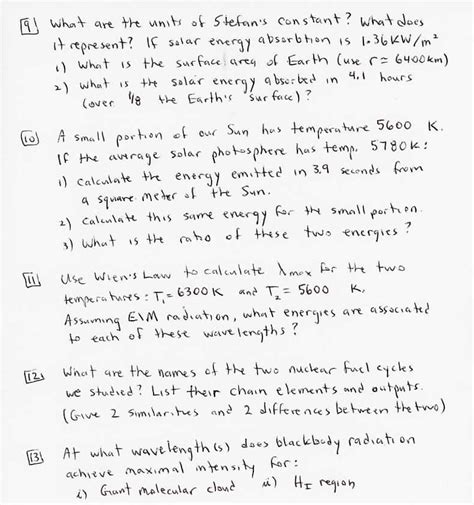 9 What are the units of Stefan's constant? What does
it represent? If solar energy absorbtion is 1.36KW/m²
1) What is the surface area of Earth (use r ≈ 6400km)
2) What is the solar energy absorbed in 4.1 hours
(over 1/8 the Earth's surface)?
10 A small portion of our Sun has temperature 5600 K.
If the average solar photosphere has temp. 5780K:
1) Calculate the energy emitted in 3.9 seconds from
a square meter of the Sun.
2) Calculate this same energy for the small portion.
3) What is the ratio of these two energies?
11 Use Wien's Law to calculate λmax for the two
temperatures: T₁ = 6300K and T₂ = 5600 K.
Assuming E\M radiation, what energies are associated
to each of these wavelengths?
12 What are the names of the two nuclear fuel cycles
we studied? List their chain elements and outputs.
(Give 2 similarities and 2 differences between the two)
13 At what wavelength(s) does blackbody radiation
achieve maximal intensity for:
i) Giant molecular cloud ii) HI region